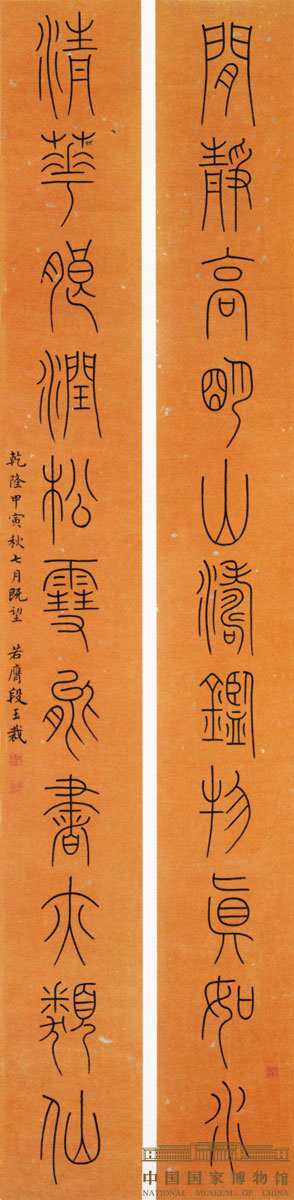 閒靜高明山濤鑑物眞如水
清華腴潤松雪能書亦類仙
乾隆甲寅秋七月既望 若膺段玉裁
中国国家博物馆
NATIONAL MUSEUM OF CHINA